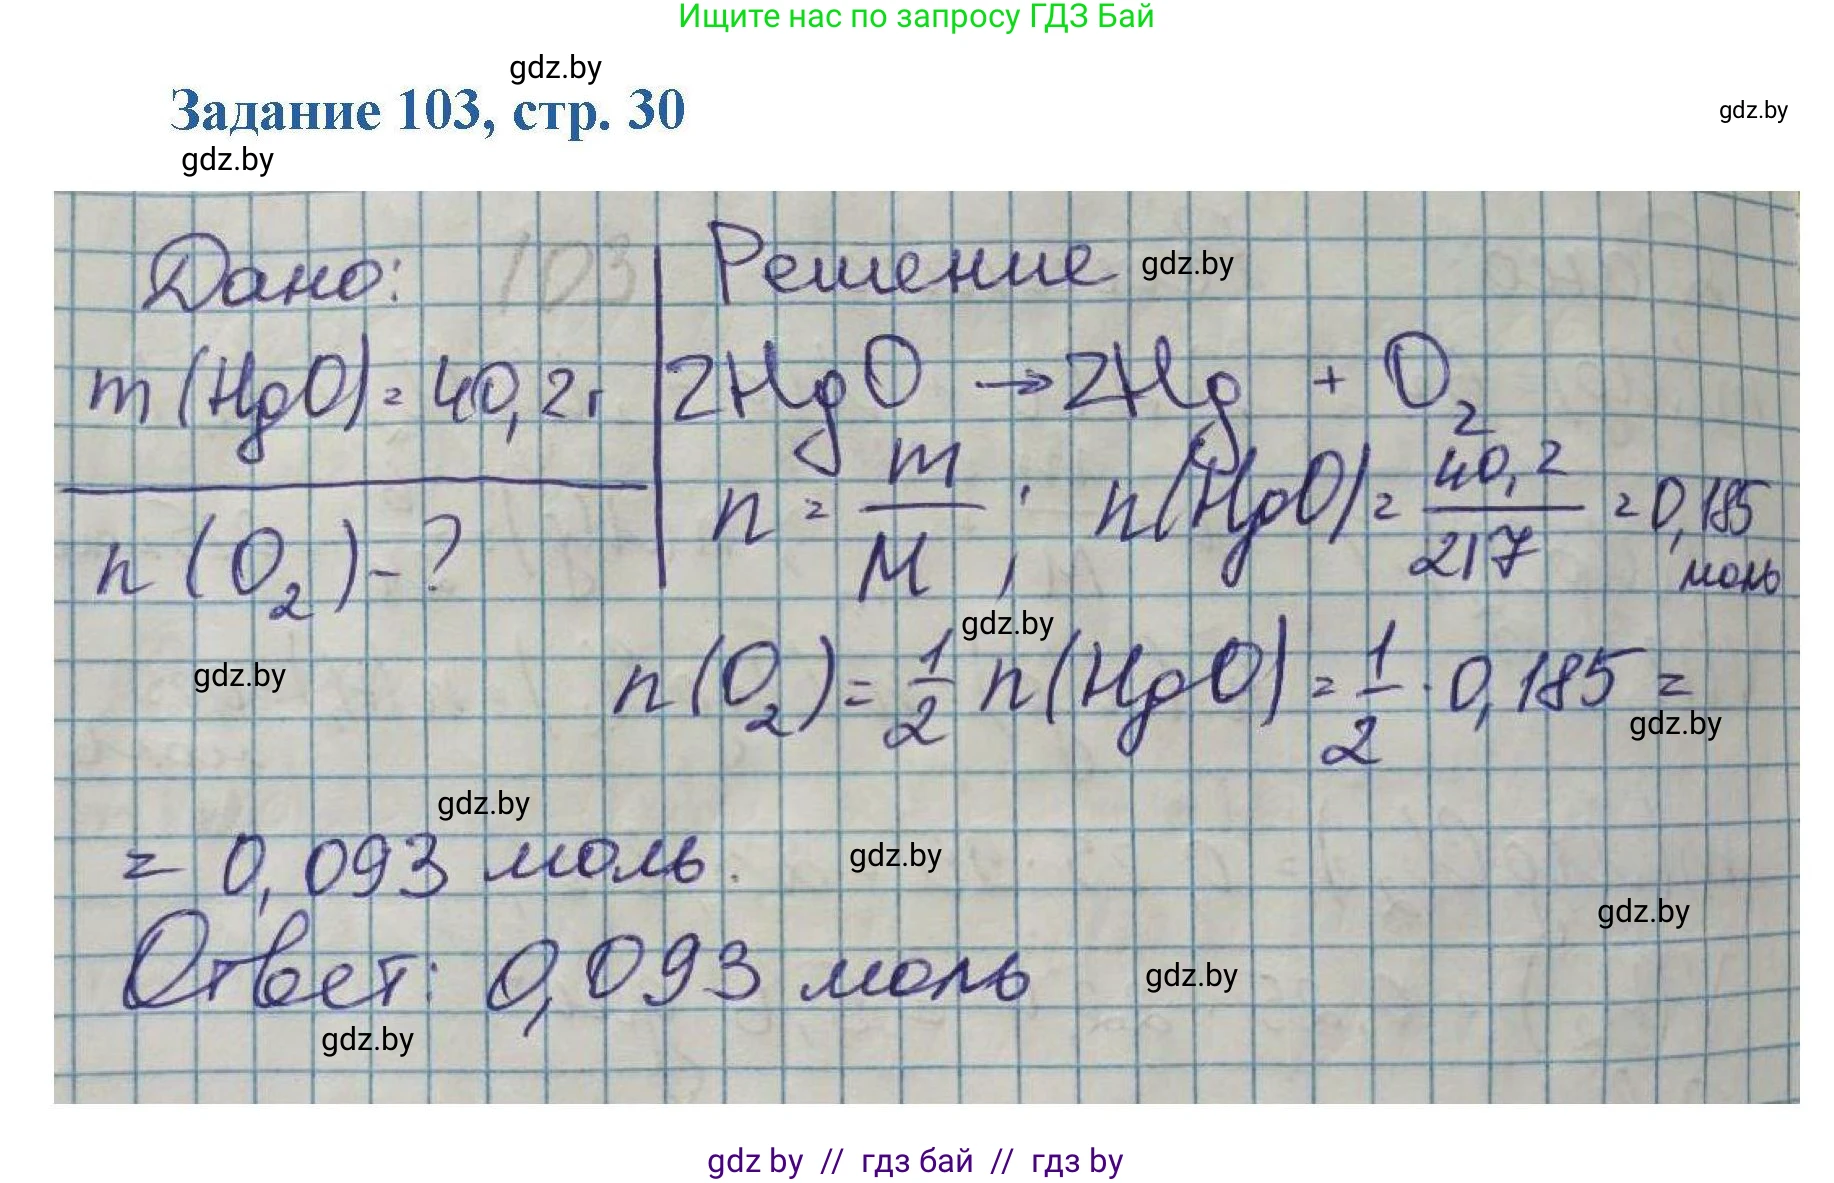 Ищите нас по запросу ГДЗ Бай
gdz.by
Задание 103, стр. 30
gdz.by
gdz.by
Дано: 103
Решение gdz.by
m(HgO) = 40,2 г
2HgO → 2Hg + O₂
n = m/M ; n(HgO) = 40,2/217 = 0,185 моль
n(O₂) - ?
gdz.by
gdz.by
n(O₂) = 1/2 n(HgO) = 1/2 · 0,185 =
gdz.by
gdz.by
= 0,093 моль.
gdz.by
gdz.by
Ответ: 0,093 моль
gdz.by
gdz.by
gdz by // гдз бай // гдз by